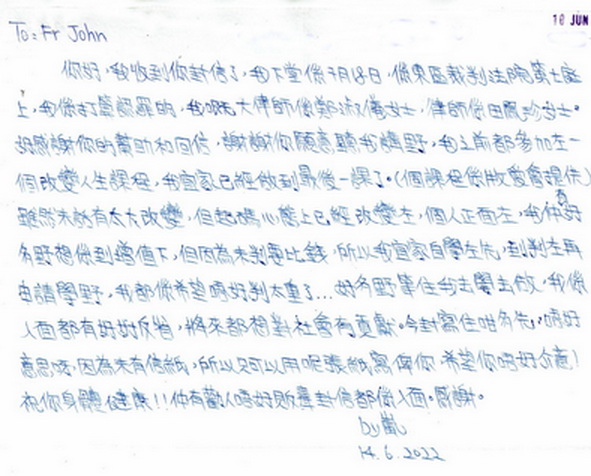 To: Fr John
10 JUN
你好，我收到你封信了，我下堂係7月18日，係東區裁判法院第七庭
上，我係打算認罪的，我嘅大律師係鄭淑儀女士，律師係田鳳珍女士。
好感謝你的幫助和回信，謝謝你願意聽我講野，我之前都參加左一
個改變人生課程，我宜家已經做到最後一課了。(個課程係牧愛會提供)
雖然未話有太大改變，但起碼心態上已經改變左，個人正面左，我仲有好
多野想做到增值下，但因為未判要比錢，所以我宜家自學左先，到判左再
申請學野，我都係希望唔好判太重了...好多野等住我去學去做，我係
入面都有好好反省，將來都想對社會有貢獻。今封寫住咁多先，唔好
意思呀，因為未有信紙，所以只可以用呢張紙寫俾你，希望你唔好介意！
祝你身體健康！！仲有歡人唔好販毒封信都係入面。感謝。
by嵐
14.6.2022